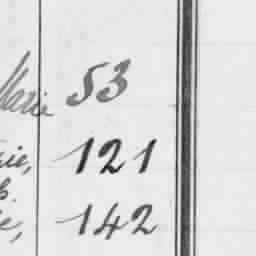 Marie 53
ie, 121
e, 142